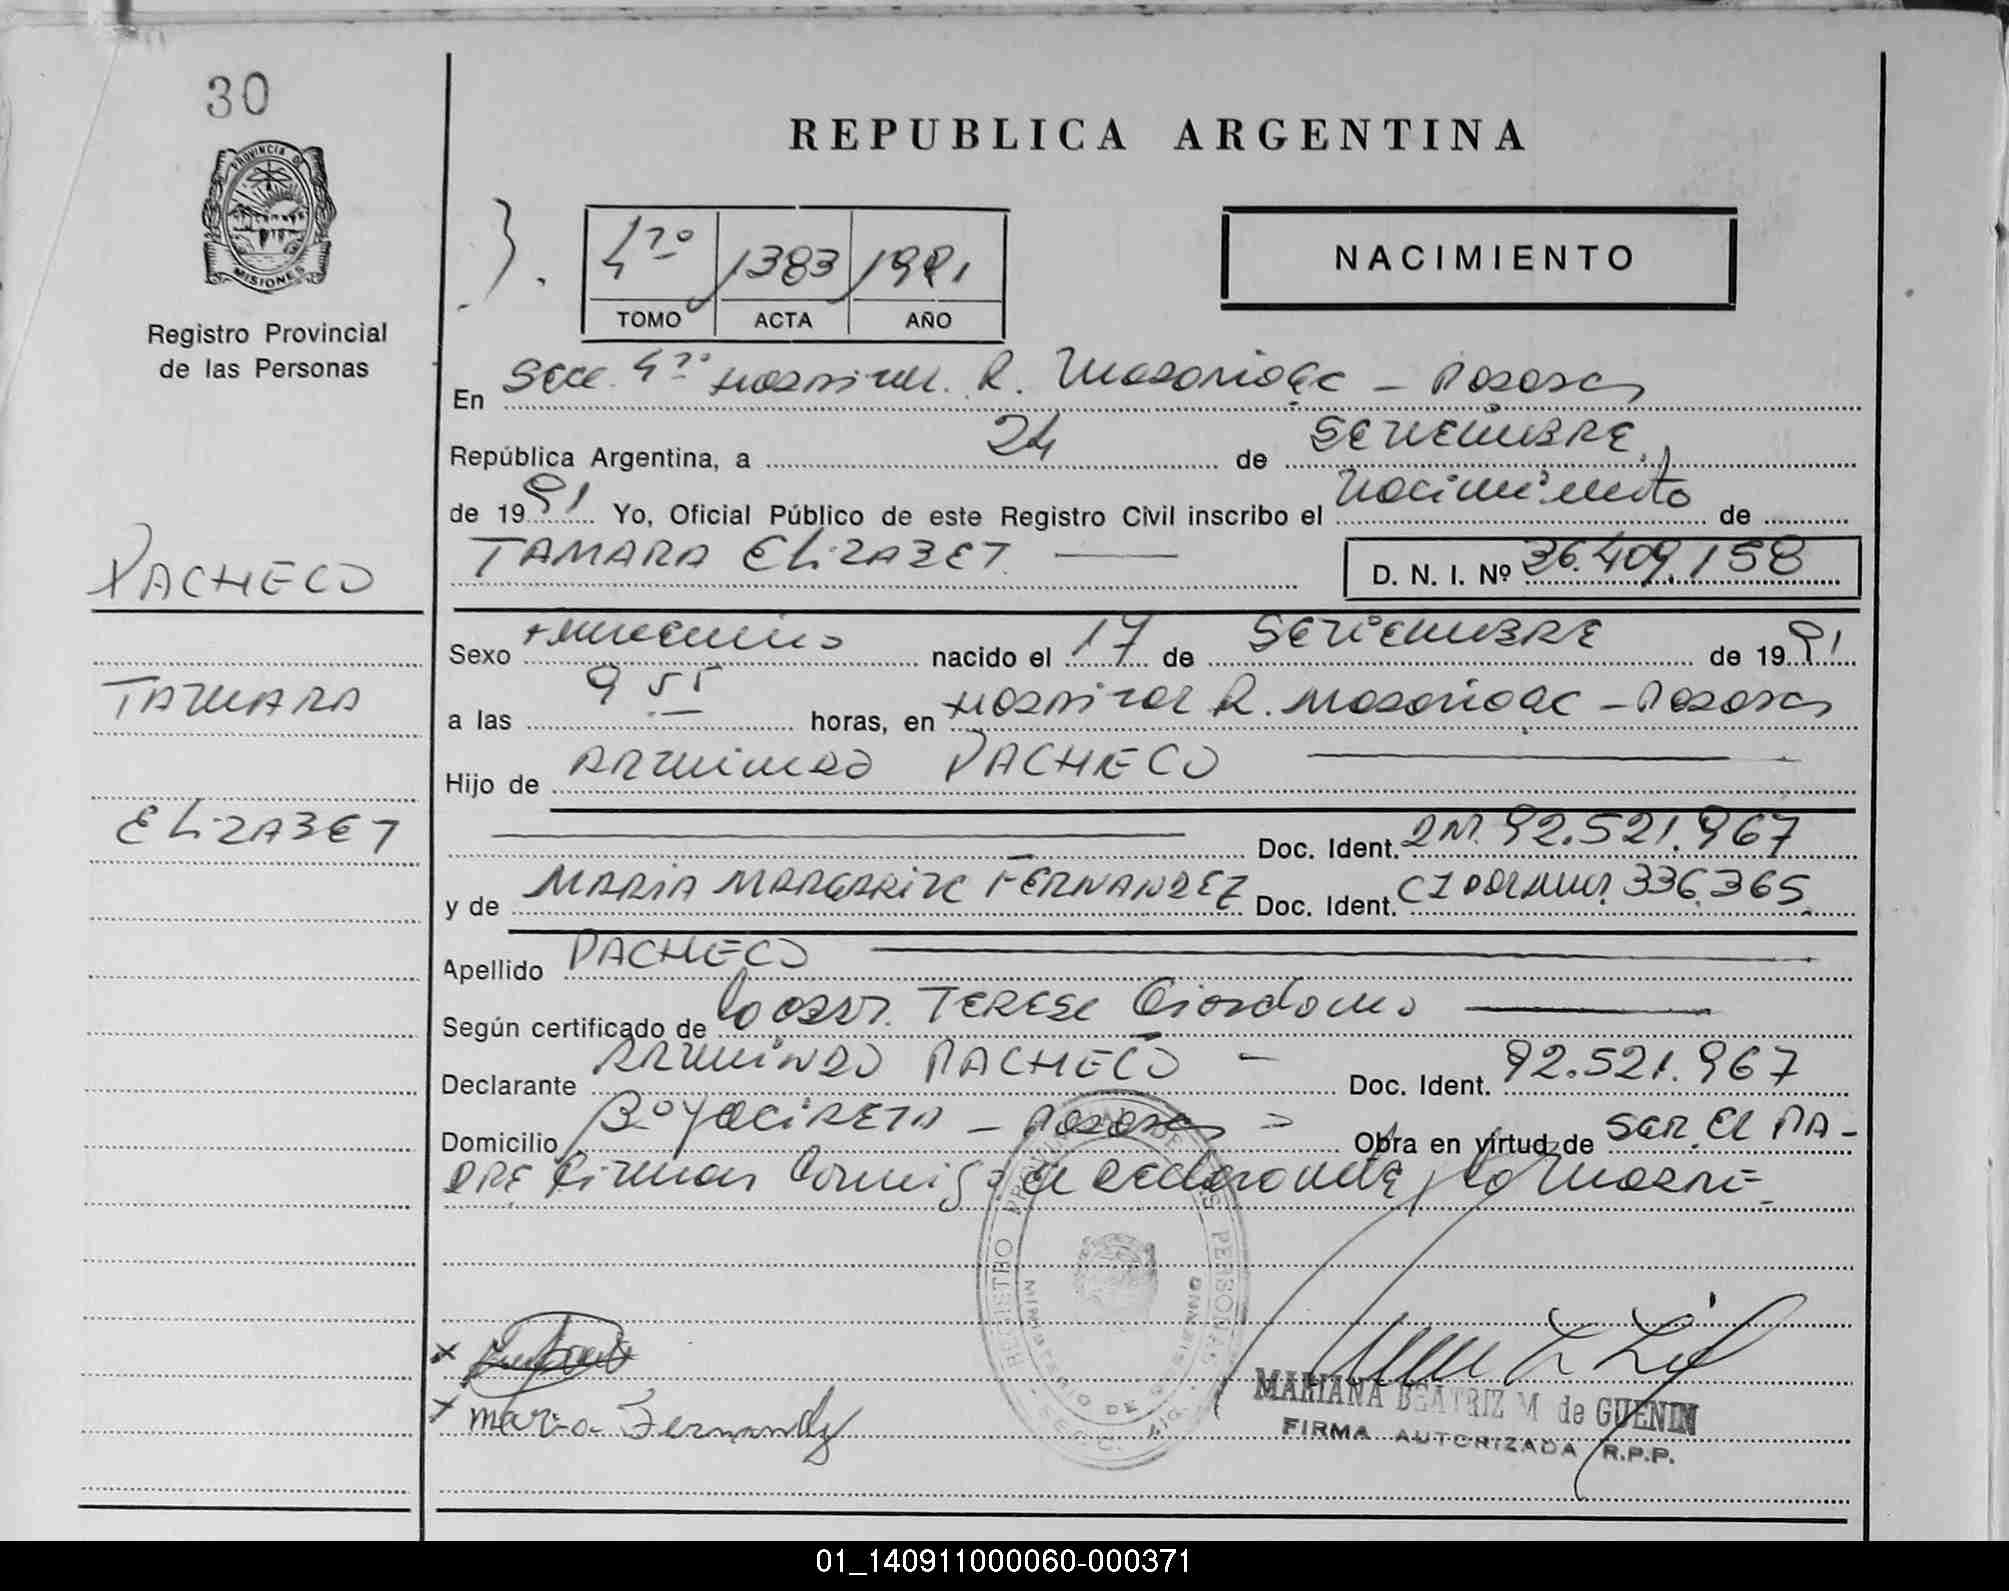 30
PROVINCIA DE
MISIONES
Registro Provincial
de las Personas
REPUBLICA ARGENTINA
NACIMIENTO
4to 1383 1991
TOMO ACTA AÑO
En Secc. 4ta Hospital R. Madariaga - Posadas
República Argentina, a 24 de SETIEMBRE
de 1991 Yo, Oficial Público de este Registro Civil inscribo el nacimiento de
TAMARA ELIZABET
D. N. I. Nº 36.409.158
PACHECO
TAMARA
ELIZABET
Sexo femenino nacido el 17 de SETIEMBRE de 1991
a las 9 55 horas, en Hospital R. Madariaga - Posadas
Hijo de ARMINDO PACHECO
Doc. Ident. 92.521.967
y de MARIA MARGARITA FERNANDEZ Doc. Ident. CI 336.365
Apellido PACHECO
Según certificado de TERESA Giordano
Declarante ARMINDO PACHECO - Doc. Ident. 92.521.967
Domicilio Bº Yacireta - Posadas Obra en virtud de SER EL PA-
DRE Firman conmigo el declarante y la madre
REGISTRO PROVINCIAL DE LAS PERSONAS
MINISTERIO DE GOBIERNO
Maria Fernandez
MARIANA BEATRIZ M de GUENIN
FIRMA AUTORIZADA R.P.P.
01_140911000060-000371